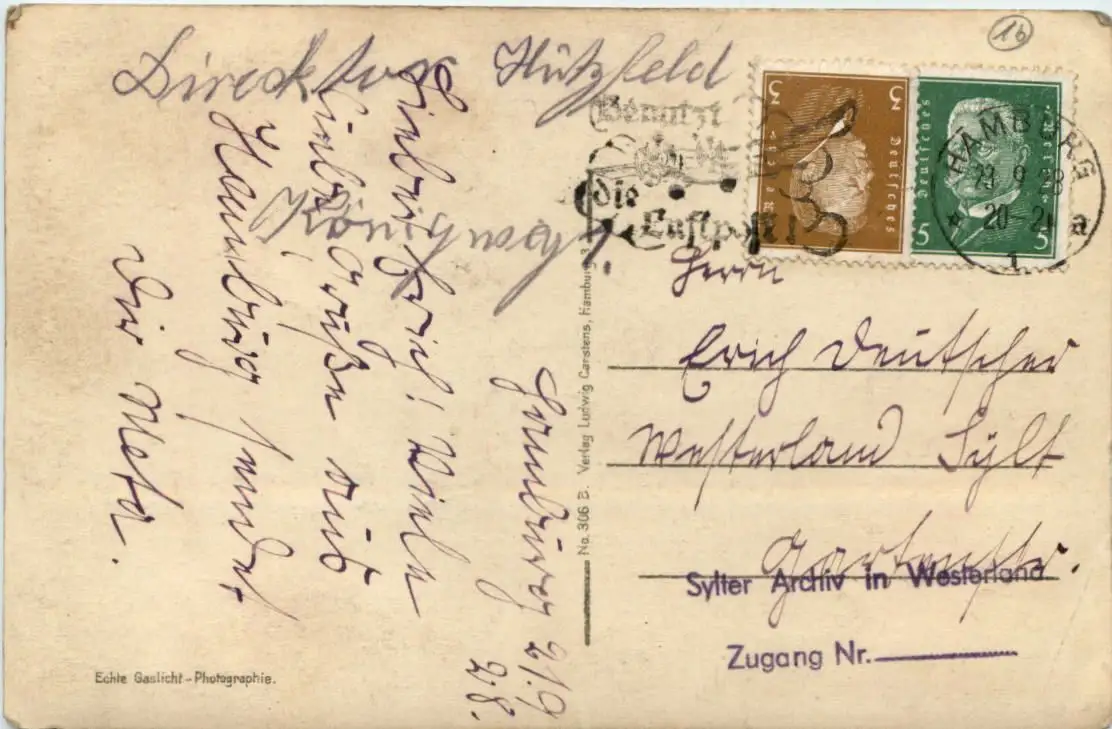 16
Direktor Hützfeld
Königsweg
Benutzt
die
Luftpost!
3 Deutsches Reich 3
5 Deutsches Reich 5
HAMBURG
9 28
20-21
* 1 a
Hamburg 21.9
28.
Lieber Erich! Viele
liebe Grüße aus
Hamburg sendet
Dir Meta.
Herrn
Erich Deutscher
Westerland Sylt
Gartenstr.
No. 306 B. Verlag Ludwig Carstens, Hamburg 3
Sylter Archiv in Westerland
Zugang Nr.
Echte Gaslicht-Photographie.